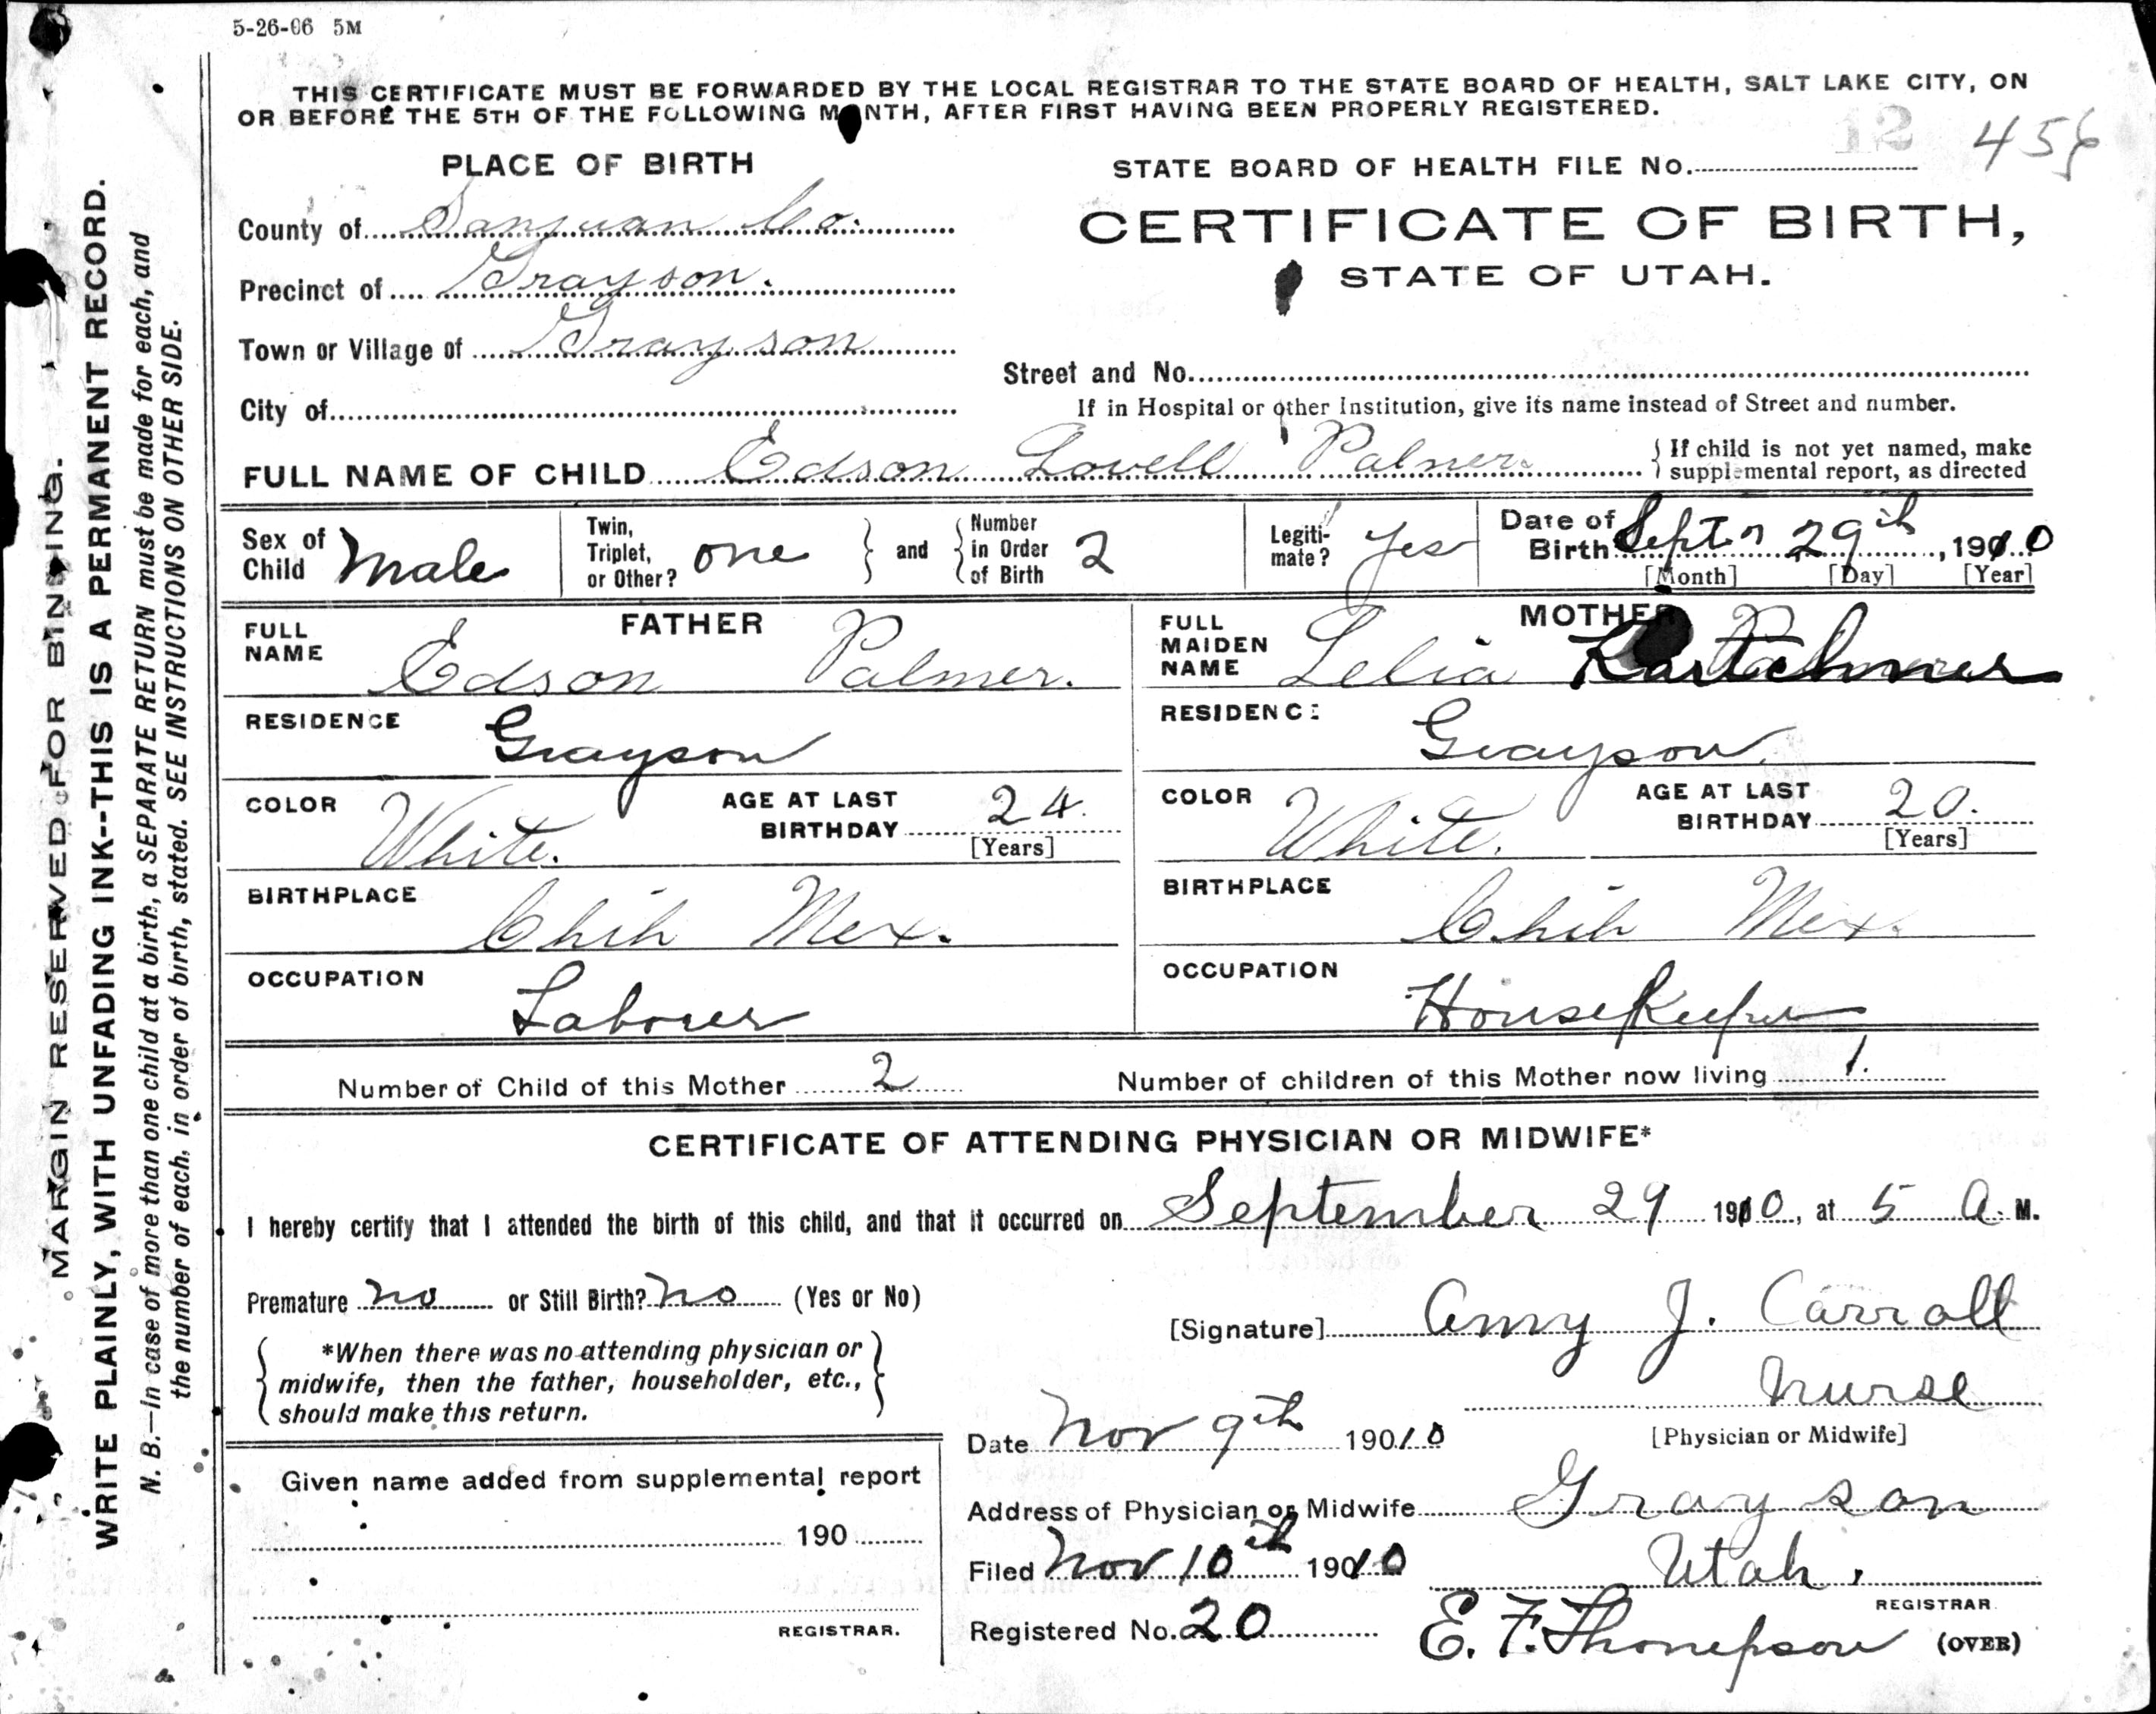 5-26-06 5M
THIS CERTIFICATE MUST BE FORWARDED BY THE LOCAL REGISTRAR TO THE STATE BOARD OF HEALTH, SALT LAKE CITY, ON
OR BEFORE THE 5TH OF THE FOLLOWING MONTH, AFTER FIRST HAVING BEEN PROPERLY REGISTERED.
12
PLACE OF BIRTH
STATE BOARD OF HEALTH FILE No.
County of Sanjuan Co.
CERTIFICATE OF BIRTH,
Precinct of Grayson.
STATE OF UTAH.
Town or Village of Grayson
Street and No.
City of
If in Hospital or other Institution, give its name instead of Street and number.
FULL NAME OF CHILD Edson Lovell Palmer
{ If child is not yet named, make
supplemental report, as directed
Sex of Child Male
Twin, Triplet, or Other? one } and { Number in Order of Birth 2
Legiti-mate? Yes
Date of Birth Septm 29th, 1910
[Month] [Day] [Year]
FATHER
FULL NAME Edson Palmer.
RESIDENCE Grayson
COLOR White.
AGE AT LAST BIRTHDAY 24.
[Years]
BIRTHPLACE Chih Mex.
OCCUPATION Laborer
MOTHER
FULL MAIDEN NAME Lelia Kartchner
RESIDENCE Grayson.
COLOR White.
AGE AT LAST BIRTHDAY 20.
[Years]
BIRTHPLACE Chih Mex.
OCCUPATION HouseKeeper
Number of Child of this Mother 2
Number of children of this Mother now living 1.
CERTIFICATE OF ATTENDING PHYSICIAN OR MIDWIFE*
I hereby certify that I attended the birth of this child, and that it occurred on September 29 1910, at 5 A. M.
Premature no or Still Birth? no (Yes or No)
[Signature] Amy J. Carroll
*When there was no attending physician or
midwife, then the father, householder, etc.,
should make this return.
Nurse
[Physician or Midwife]
Date Nov 9th 19010
Given name added from supplemental report
190
REGISTRAR.
Address of Physician or Midwife Grayson
Utah.
Filed Nov 10th 1910
REGISTRAR
Registered No. 20
E. F. Thompson
(OVER)
MARGIN RESERVED FOR BINDING.
WRITE PLAINLY, WITH UNFADING INK--THIS IS A PERMANENT RECORD.
N. B.—In case of more than one child at a birth, a SEPARATE RETURN must be made for each, and
the number of each, in order of birth, stated. SEE INSTRUCTIONS ON OTHER SIDE.